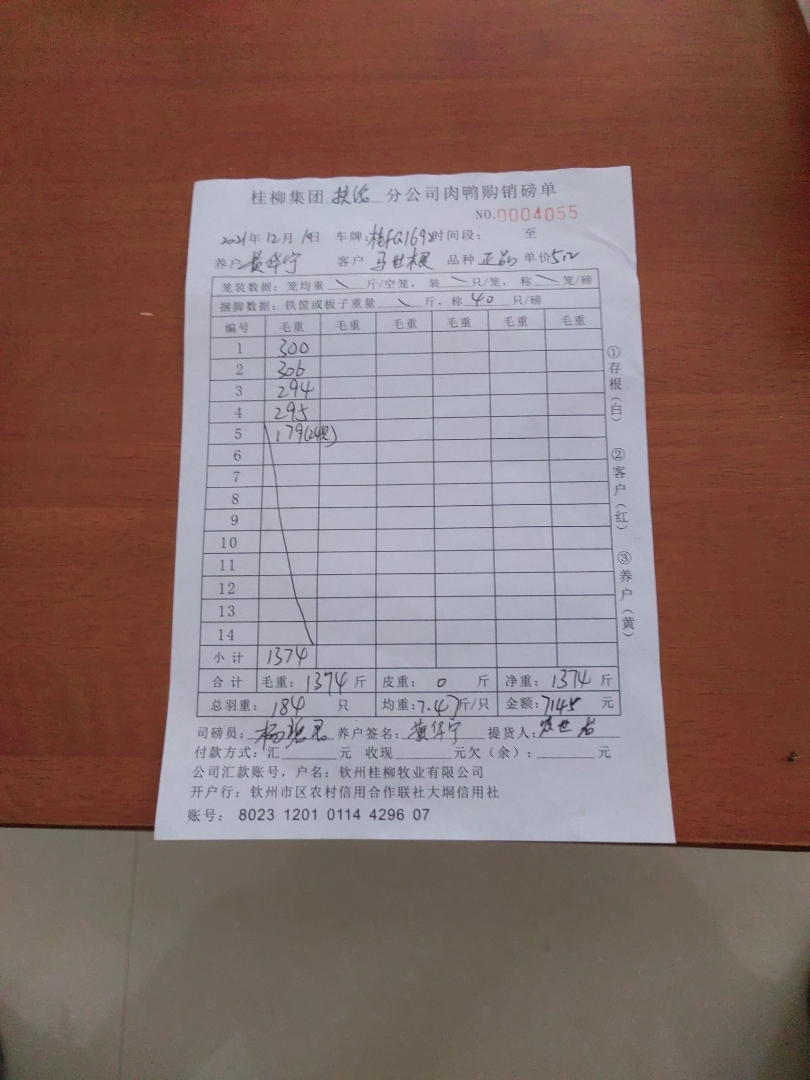 桂柳集团 分公司肉鸭购销磅单
NO.0004055
2021年12月1日 车牌: 时间段: 至
养户 黄华宁 客户 马世根 品种 正品 单价5.2
笼装数据: 笼均重 \ 斤/空笼, 装 \ 只/笼, 称 \ 笼/磅
捆脚数据: 铁筐或板子重量 \ 斤, 称 40 只/磅
编号 毛重 毛重 毛重 毛重 毛重 毛重
1 300
2 306
3 294
4 295
5 179(24只)
6
7
8
9
10
11
12
13
14
小计 1374
合计 毛重: 1374 斤 皮重: 0 斤 净重: 1374 斤
总羽重: 184 只 均重: 7.47斤/只 金额: 7145 元
司磅员: 养户签名: 黄华宁 提货人:
付款方式: 汇 元 收现 元欠(余): 元
公司汇款账号, 户名: 钦州桂柳牧业有限公司
开户行: 钦州市区农村信用合作联社大垌信用社
账号: 8023 1201 0114 4296 07
①存根(白)
②客户(红)
③养户(黄)